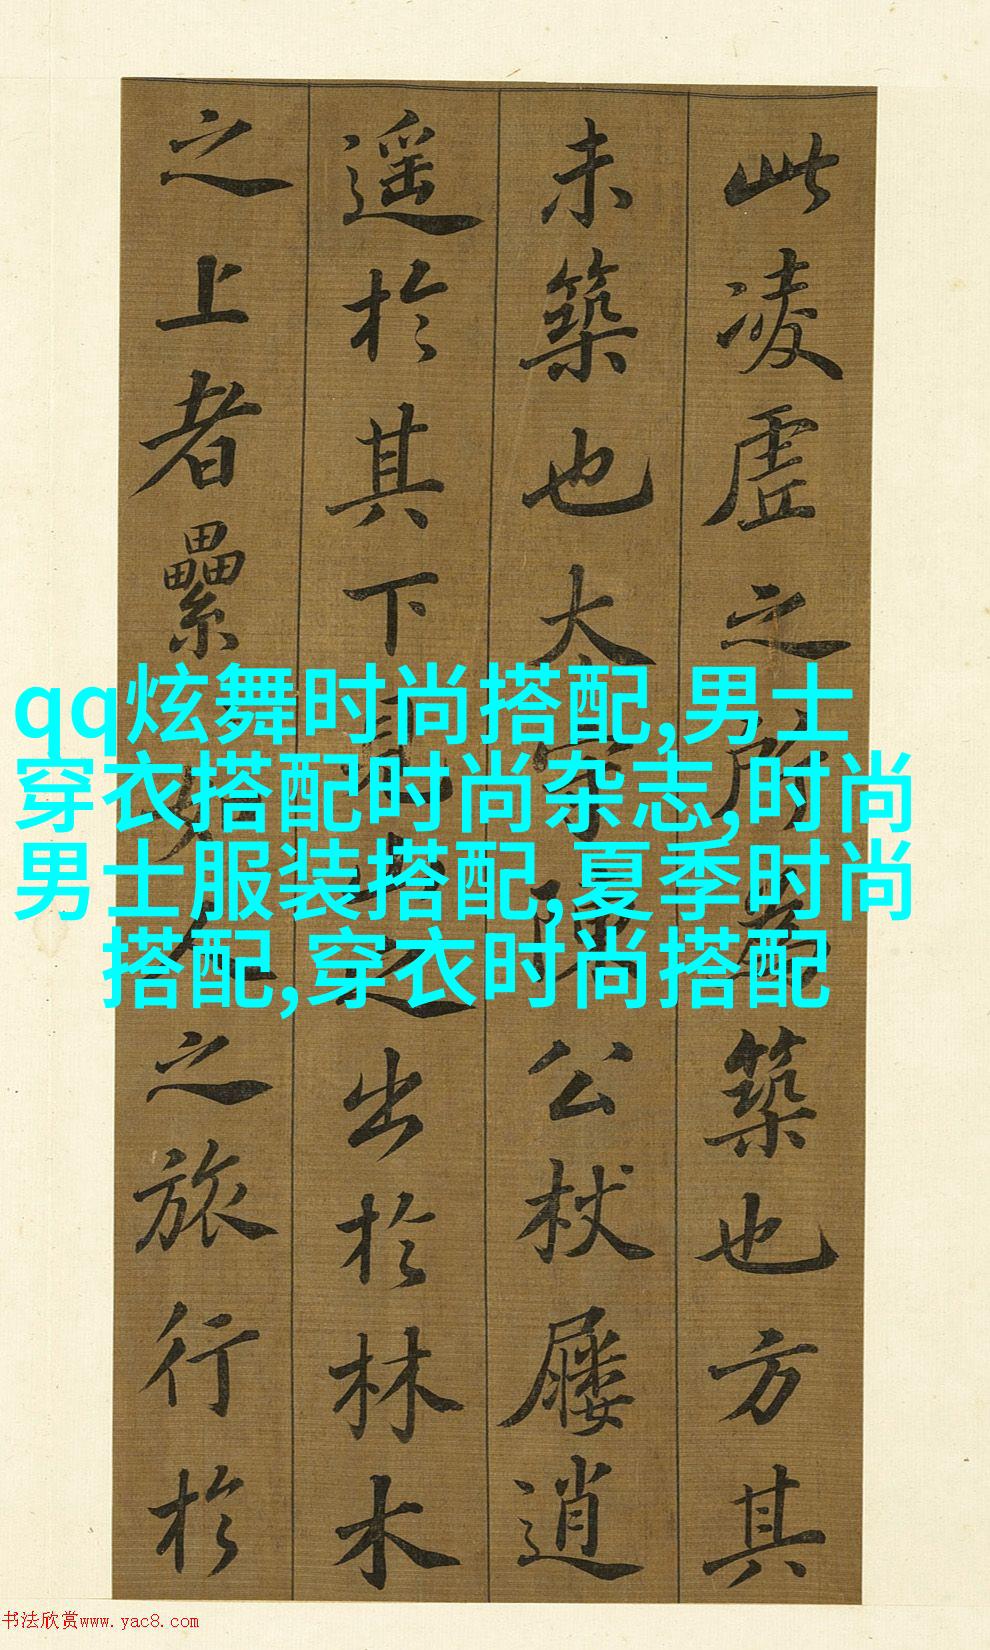 此凌虛之所為築也方其
未築也太守陳公杖屨逍
遥於其下見山之出於林木
之上者纍如人之旅行於
qq炫舞时尚搭配,男士
穿衣搭配时尚杂志,时尚
男士服装搭配,夏季时尚
搭配,穿衣时尚搭配
书法欣赏www.yac8.com